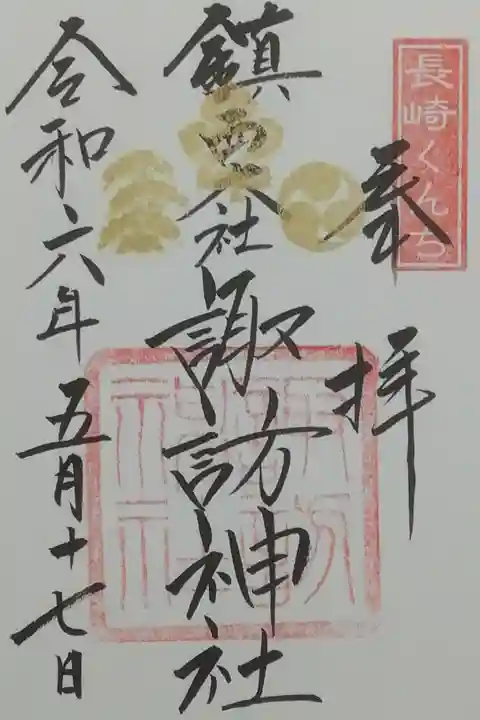 長崎くんち
奉拝
鎮西大社諏訪神社
令和六年五月十七日